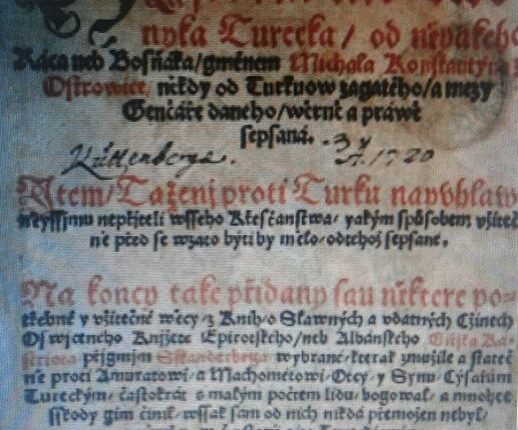 nyka Turecka/ od něyakeho
Ráca neb Bosňáka/ gménem Michala Konstantyna
Ostrowice, někdy od Turkuow zagatého/ a mezy
Genčáře daneho/ wěrně a práwě
sepsaná.
Kuttenberga. 1720
Item/ Taženj proti Turku
neyssjmu nepřiteli wsseho Křesťanstwa/ yakým spůsobem vžiteč
ně před se wzato býti by mělo/ od tehož sepsané.
Na koncy také přidany sau některe po-
třebné y vžitečné wěcy z Knih/ o Sławných a vdatných Cžinech
Oswjceného Knjžete Epirotského/ neb Albánského Girjka Ka-
striota přigmjm Sskanderbega wybrané/ kterak zmužile a stateč
ně proti Amuratowi/ a Machometowi/ Otcy y Synu/ Cýsařům
Tureckým/ častokrát s małým počtem lidu/ bogowal/ a mnohee
sskody gim činil/ wssak sam od nich nikdá přemožen nebyl/